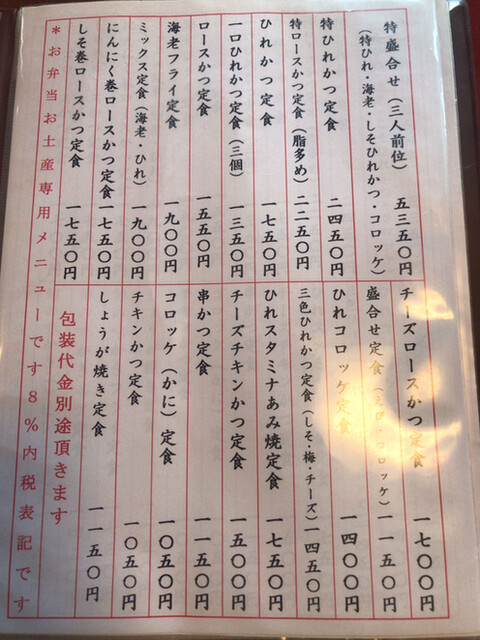 特盛合せ（三人前位） 五三五〇円
（特ひれ・海老・しそひれかつ・コロッケ）
特ひれかつ定食 二四五〇円
特ロースかつ定食（脂多め） 二二五〇円
ひれかつ定食 一七五〇円
一口ひれかつ定食（三個） 一三五〇円
ロースかつ定食 一五五〇円
海老フライ定食 一九〇〇円
ミックス定食（海老・ひれ） 一九〇〇円
にんにく巻ロースかつ定食 一七五〇円
しそ巻ロースかつ定食 一七五〇円
チーズロースかつ定食 一七〇〇円
盛合せ定食（えび・コロッケ） 一一五〇円
ひれコロッケ定食 一四〇〇円
三色ひれかつ定食（しそ・梅・チーズ） 一四五〇円
ひれスタミナあみ焼定食 一七五〇円
チーズチキンかつ定食 一五〇〇円
串かつ定食 一一五〇円
コロッケ（かに）定食 一〇五〇円
チキンかつ定食 一〇五〇円
しょうが焼き定食 一一五〇円
包装代金別途頂きます
＊お弁当お土産専用メニューです8％内税表記です